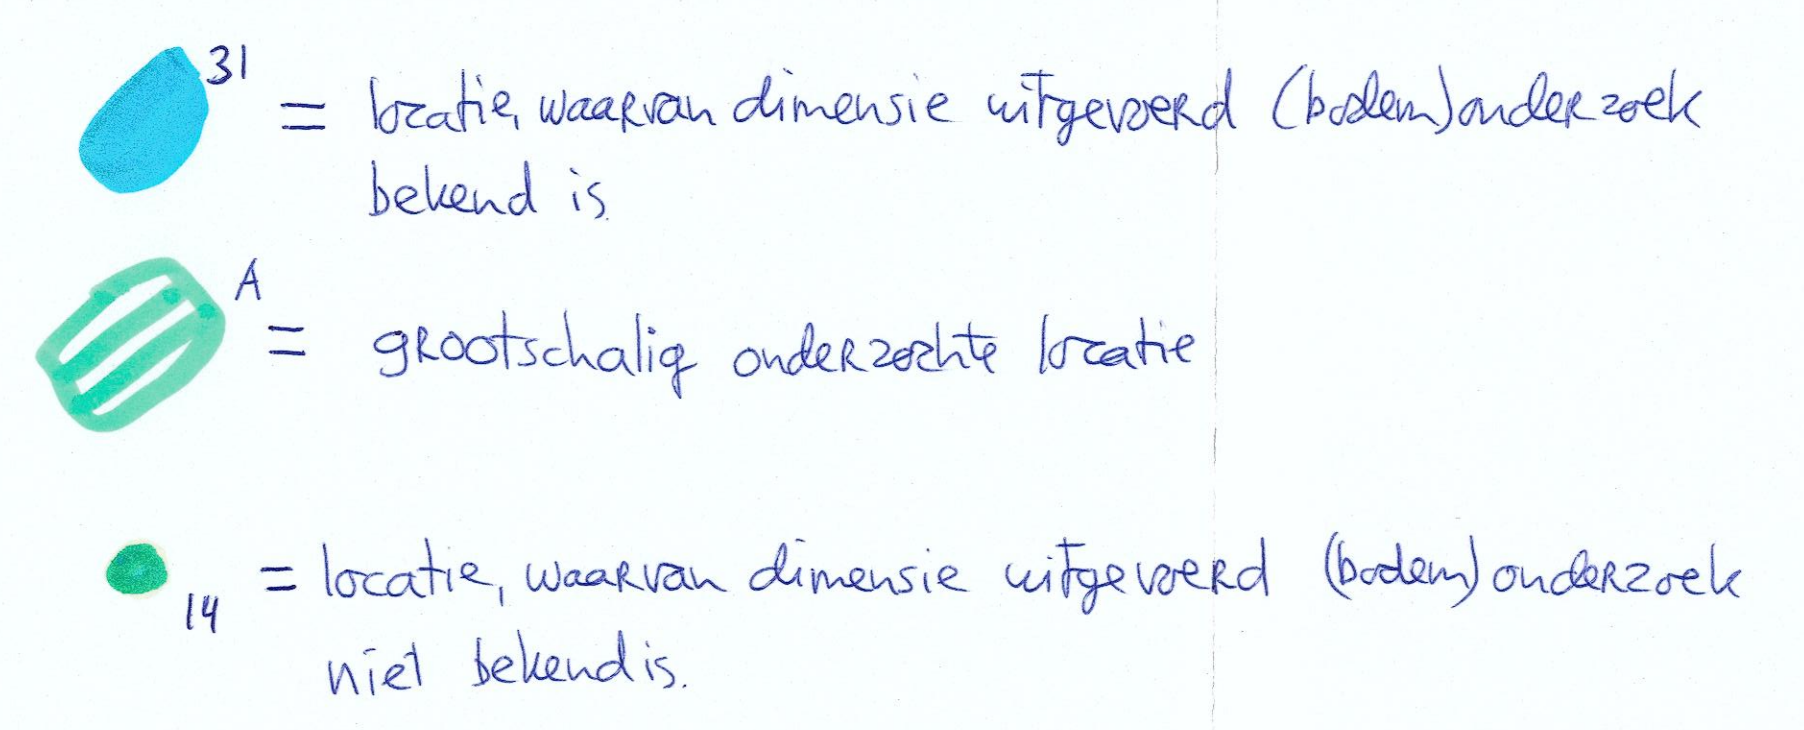 31 = locatie, waarvan dimensie uitgevoerd (bodem)onderzoek
bekend is.
A = grootschalig onderzochte locatie
14 = locatie, waarvan dimensie uitgevoerd (bodem)onderzoek
niet bekend is.